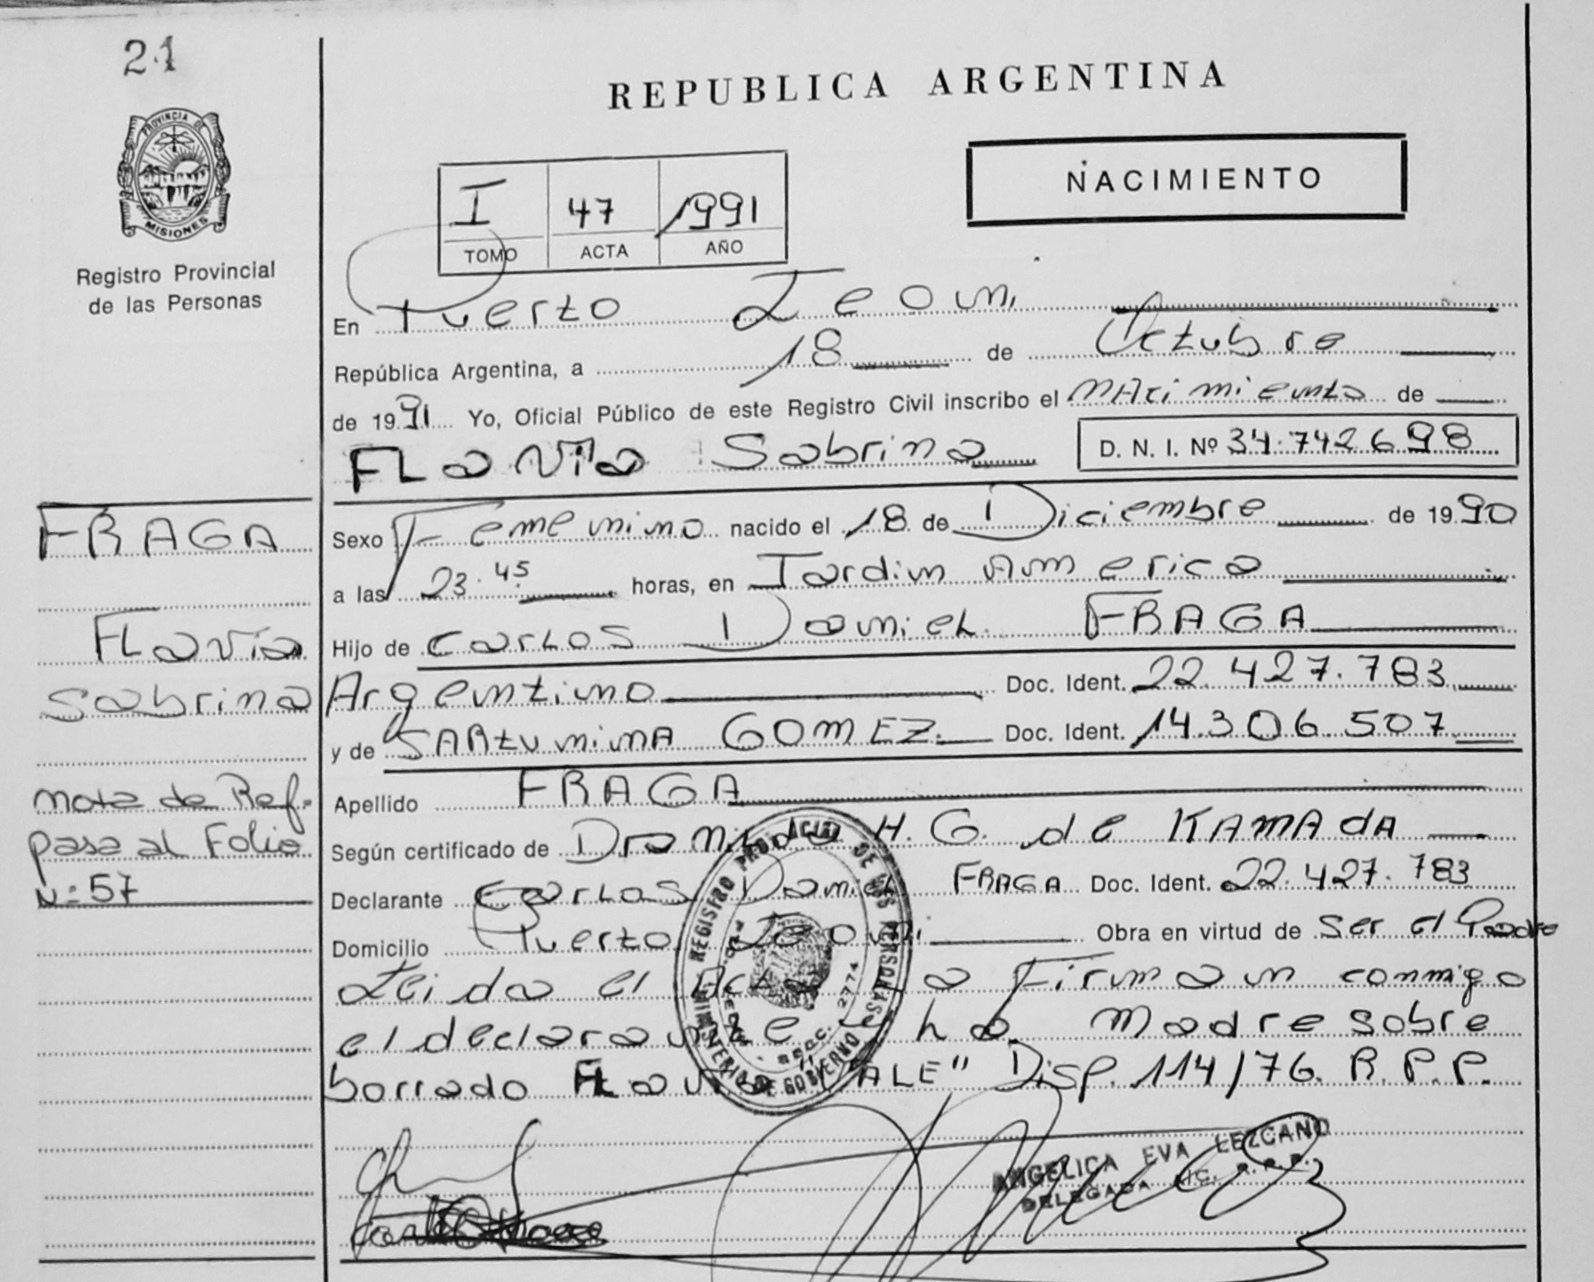 21
REPUBLICA ARGENTINA
PROVINCIA DE
MISIONES
Registro Provincial
de las Personas
NACIMIENTO
I 47 1991
TOMO ACTA AÑO
En Puerto Leoni
República Argentina, a 18 de Octubre
de 1991 Yo, Oficial Público de este Registro Civil inscribo el nacimiento de
FLavia Sabrina D. N. I. Nº 34.742.698
FRAGA
Sexo Femenino nacido el 18 de Diciembre de 1990
a las 23.45 horas, en Jardin America
FLavia
Hijo de CarLos DanieL FRAGA
Sabrina
Argentino Doc. Ident. 22.427.783
y de SARTUNINA GOMEZ Doc. Ident. 14.306.507
Nota de Ref.
Apellido FRAGA
pasa al Folio
Según certificado de Dra H. G. de KAMADA
Nº 57
Declarante CarLos Daniel FRAGA Doc. Ident. 22.427.783
Domicilio Puerto Leoni Obra en virtud de Ser el Padre
Leida el Acta La Firman conmigo
el declarante y ha Madre sobre
borrado FLavia "VALE" Disp. 114/76. R.P.P.
REGISTRO PROVINCIAL DE LAS PERSONAS
MINISTERIO DE GOBIERNO
2774
ANGELICA EVA LEZCANO
DELEGADA R.P.P.